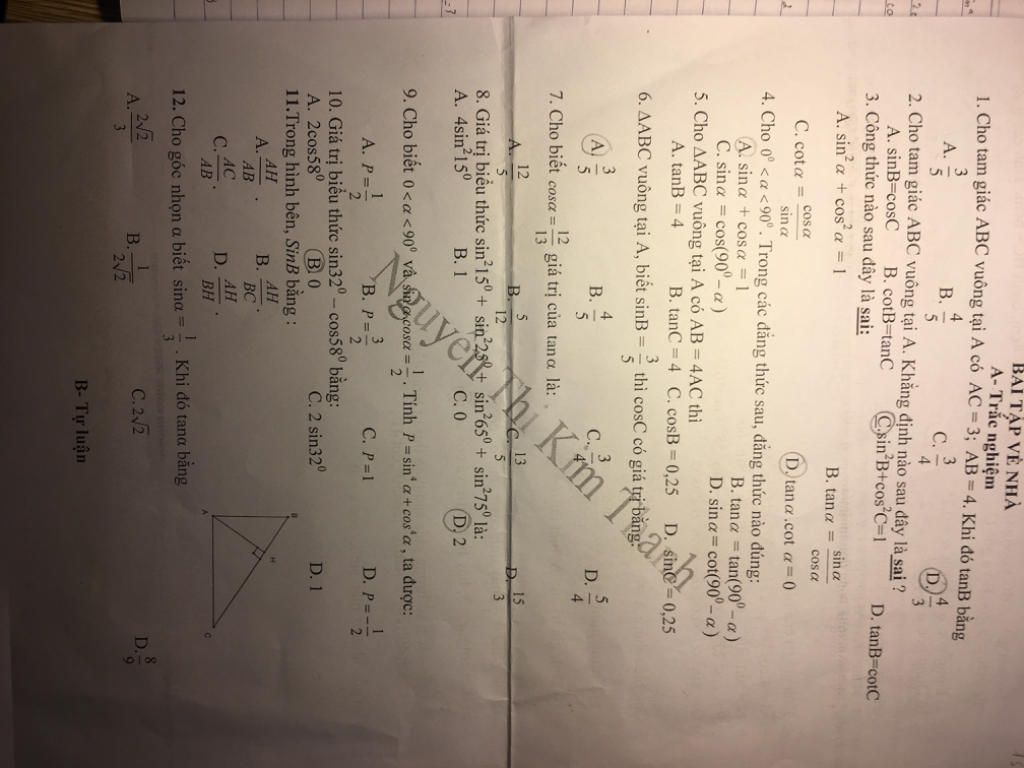 BÀI TẬP VỀ NHÀ
A- Trắc nghiệm
1. Cho tam giác ABC vuông tại A có AC = 3; AB = 4. Khi đó tanB bằng
A. 3/5 B. 4/5 C. 3/4 D. 4/3
2. Cho tam giác ABC vuông tại A. Khẳng định nào sau đây là sai ?
A. sinB=cosC B. cotB=tanC C. sin²B+cos²C=1 D. tanB=cotC
3. Công thức nào sau đây là sai:
A. sin² α + cos² α = 1 B. tan α = sin α/cos α
C. cot α = cos α/sin α D. tan α .cot α = 0
4. Cho 0⁰ < α < 90⁰. Trong các đẳng thức sau, đẳng thức nào đúng:
A. sin α + cos α = 1 B. tan α = tan(90⁰ − α)
C. sin α = cos(90⁰ − α) D. sin α = cot(90⁰ − α)
5. Cho ΔABC vuông tại A có AB = 4AC thì
A. tanB = 4 B. tanC = 4 C. cosB = 0,25 D. sinC = 0,25
6. ΔABC vuông tại A, biết sinB = 3/5 thì cosC có giá trị bằng:
A. 3/5 B. 4/5 C. 3/4 D. 5/4
7. Cho biết cosα = 12/13 giá trị của tan α là:
A. 12/5 B. 5/12 C. 13/5 D. 15/3
8. Giá trị biểu thức sin²15⁰ + sin²25⁰ + sin²65⁰ + sin²75⁰ là:
A. 4sin²15⁰ B. 1 C. 0 D. 2
9. Cho biết 0 < α < 90⁰ và sinα.cosα = 1/2. Tính P = sin⁴ α + cos⁴ α, ta được:
A. P = 1/2 B. P = 3/2 C. P = 1 D. P = −1/2
10. Giá trị biểu thức sin32⁰ − cos58⁰ bằng:
A. 2cos58⁰ B. 0 C. 2 sin32⁰ D. 1
11.Trong hình bên, SinB bằng :
A. AH/AB . B. AH/BC .
C. AC/AB . D. AH/BH .
B
H
A
C
12. Cho góc nhọn α biết sinα = 1/3 . Khi đó tanα bằng
A. 2√2/3 B. 1/2√2 C. 2√2 D. 8/9
B- Tự luận
Nguyễn Thị Kim Thanh